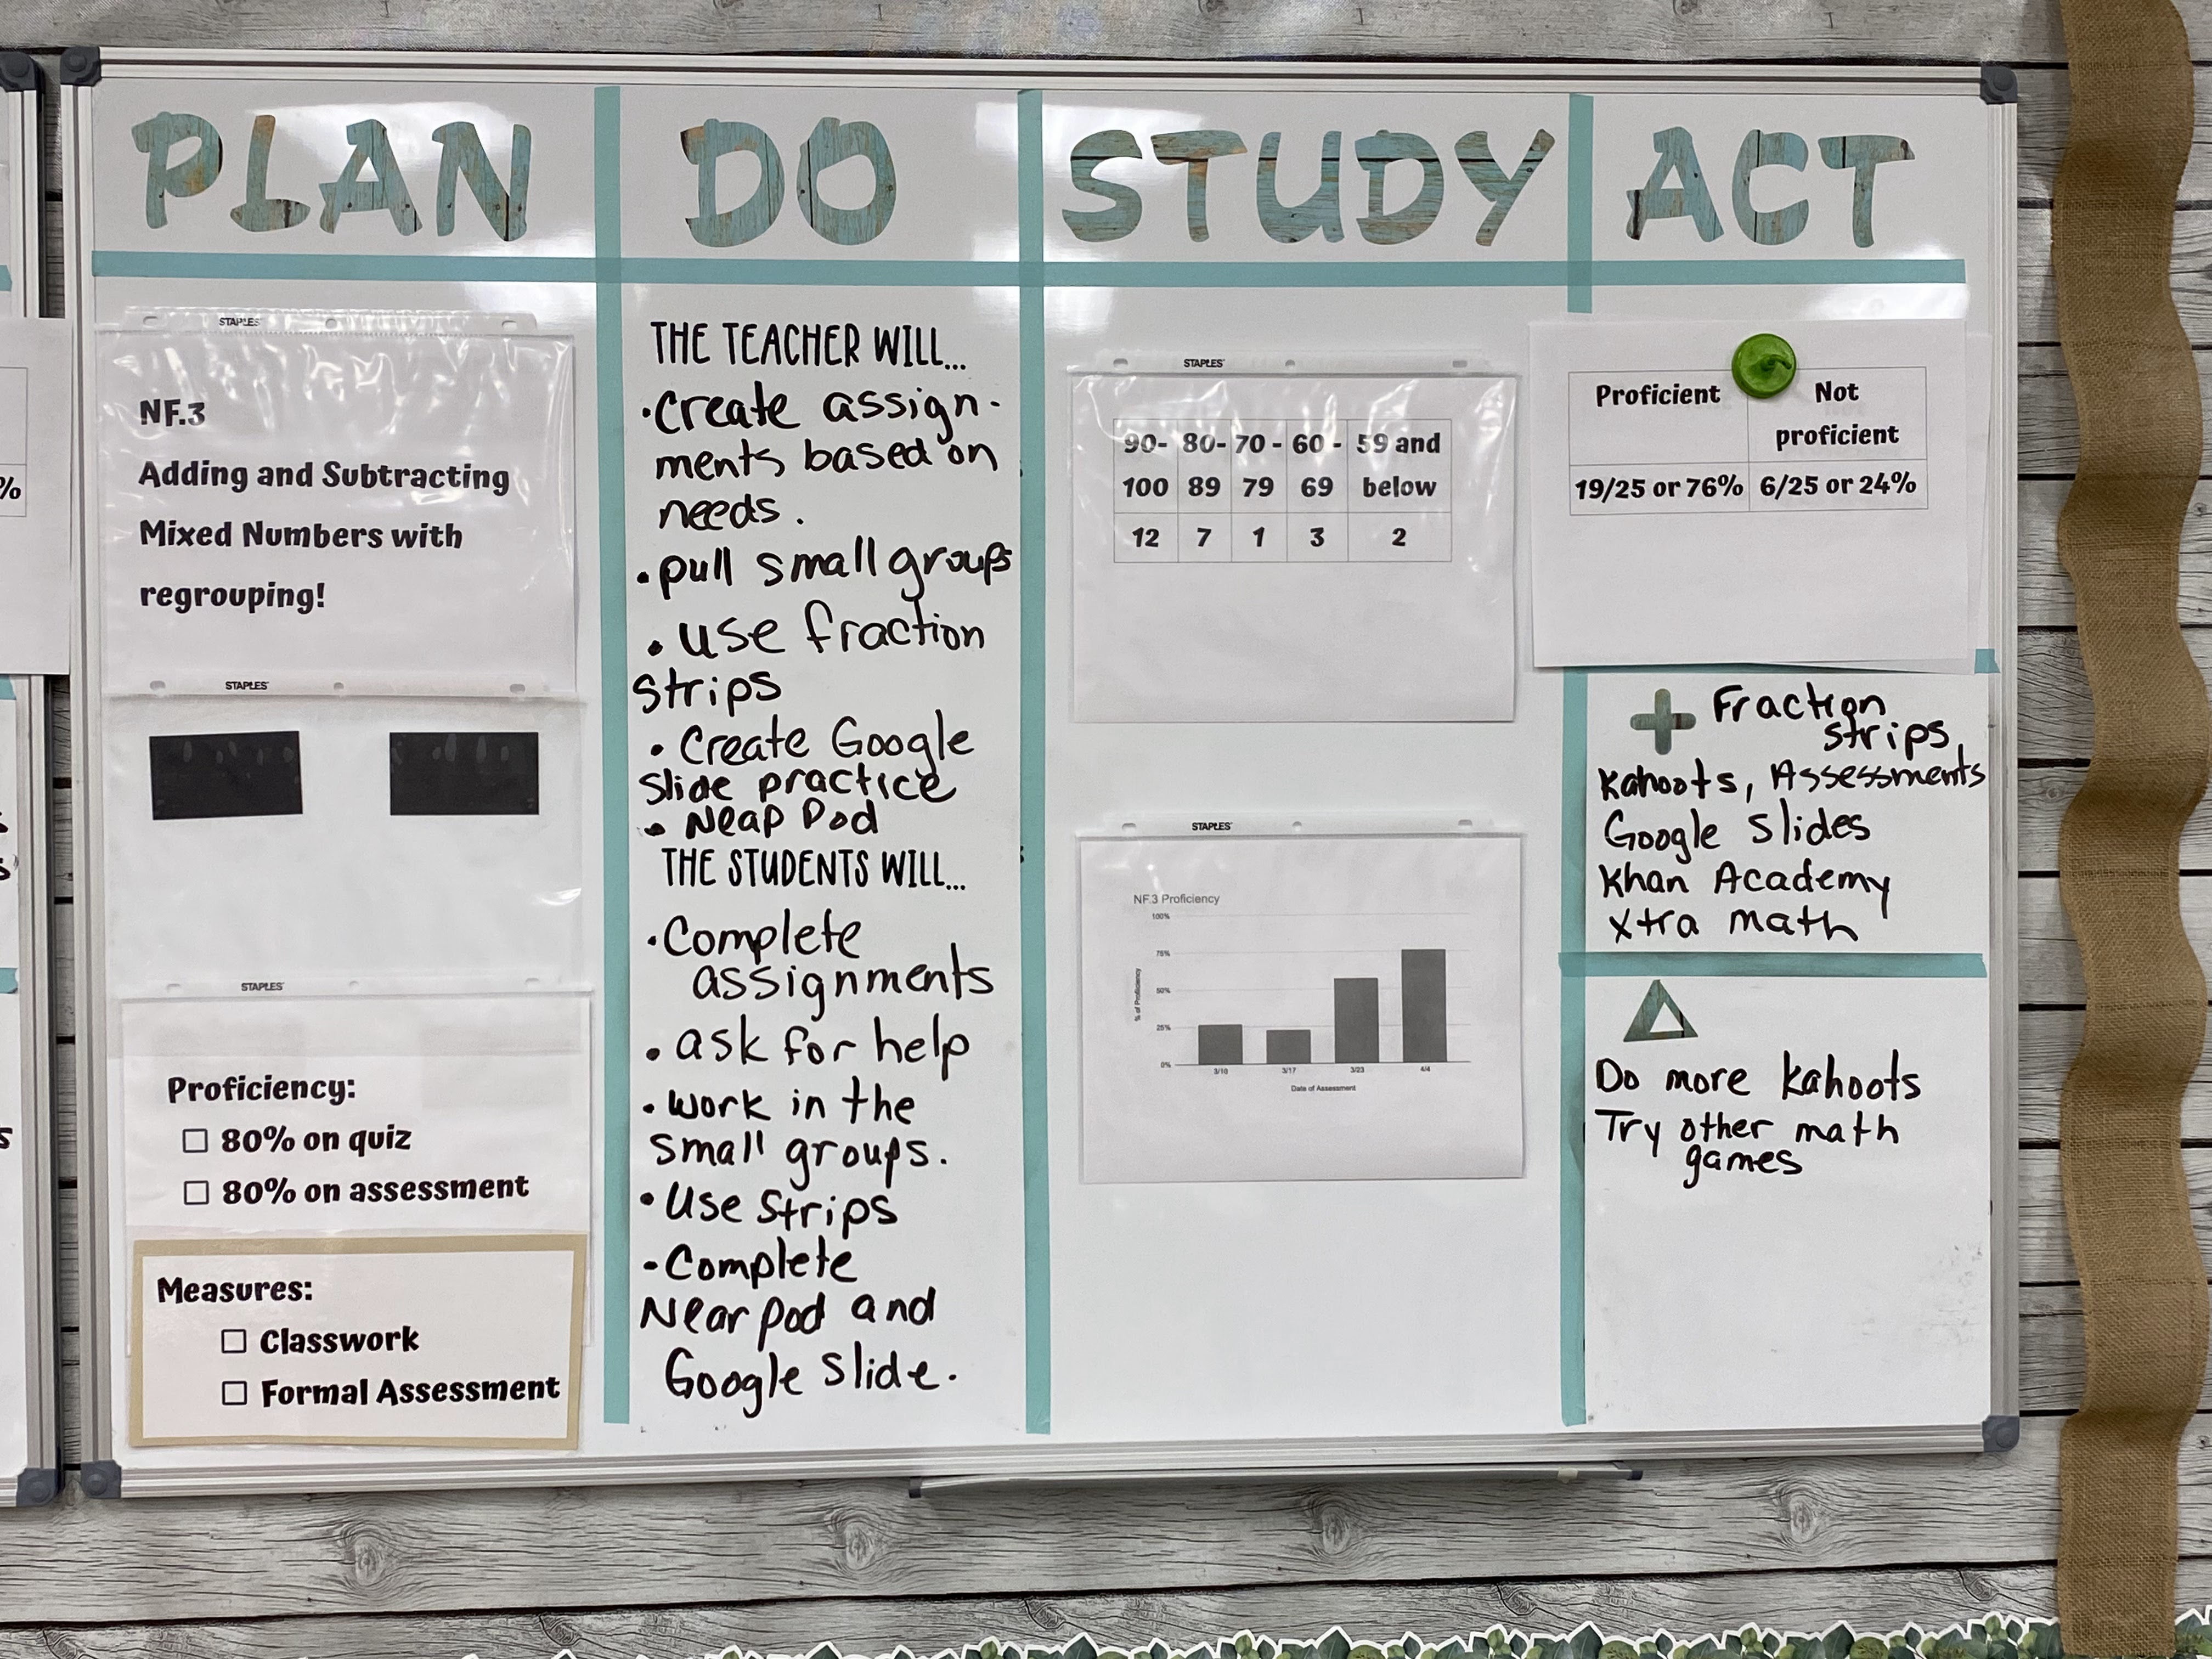 PLAN
DO
STUDY
ACT
STAPLES
NF.3
Adding and Subtracting
Mixed Numbers with
regrouping!
STAPLES
STAPLES
Proficiency:
80% on quiz
80% on assessment
Measures:
Classwork
Formal Assessment
THE TEACHER WILL...
•Create assign-
ments based on
needs.
•pull small groups
•use fraction
strips
•Create Google
Slide practice
•Neap Pod
THE STUDENTS WILL...
•Complete
assignments
•ask for help
•work in the
small groups.
•Use Strips
-Complete
Nearpod and
Google Slide.
STAPLES
90- 80- 70 - 60 - 59 and
100 89 79 69 below
12 7 1 3 2
STAPLES
NF.3 Proficiency
100%
75%
50%
25%
0%
% of Proficiency
3/10 3/17 3/23 4/4
Date of Assessment
Proficient Not
proficient
19/25 or 76% 6/25 or 24%
+ Fraction
strips,
Kahoots, Assessments
Google Slides
Khan Academy
Xtra math
Do more Kahoots
Try other math
games
%
s